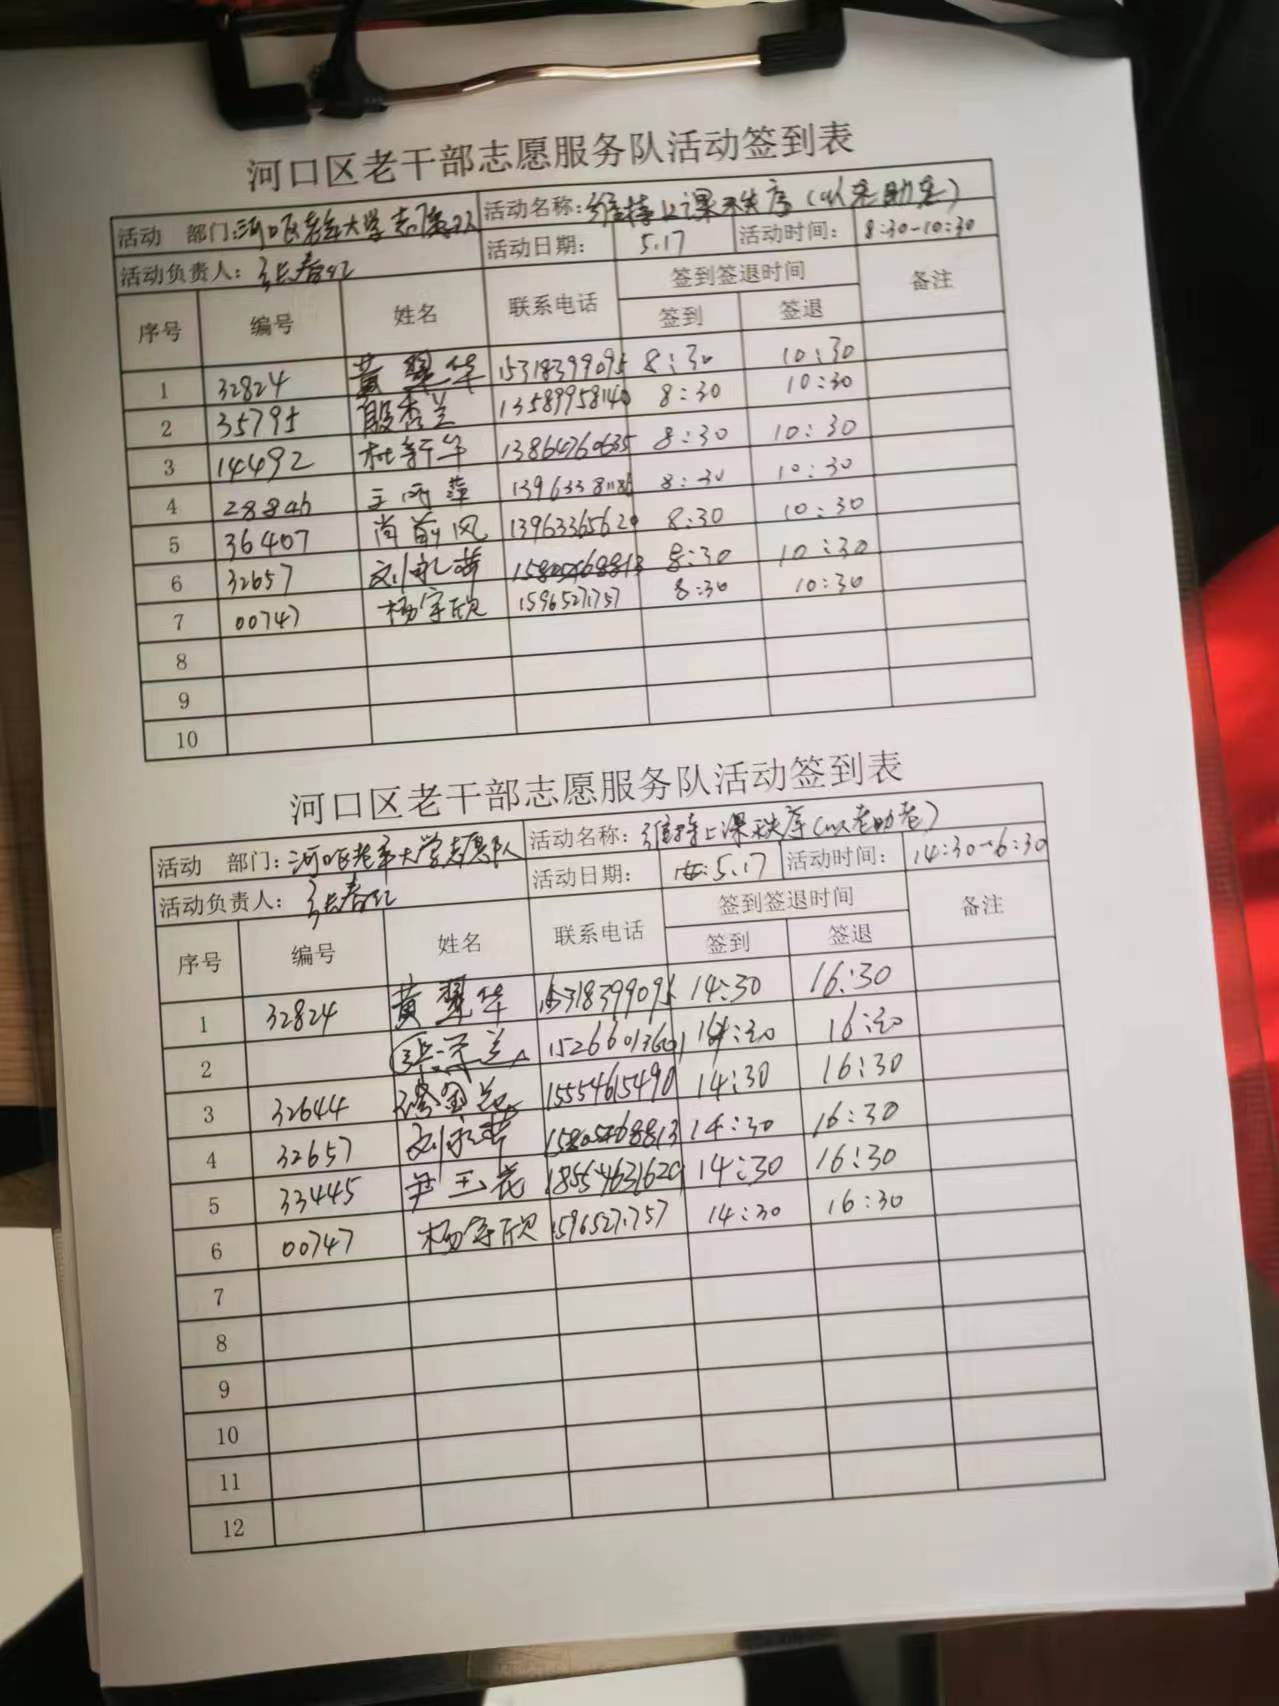 河口区老干部志愿服务队活动签到表
活动 部门:河口区老年大学志愿队 活动名称:维持上课秩序(以老助老)
活动负责人:张春红 活动日期: 5.17 活动时间: 8:30-10:30
序号 编号 姓名 联系电话 签到签退时间 备注
签到 签退
1 32824 黄翠华 15318399095 8:30 10:30
2 35795 殷秀兰 13589958140 8:30 10:30
3 14492 杜新华 13864760635 8:30 10:30
4 28846 王丽萍 8:30 10:30
5 36407 尚前风 13963365620 8:30 10:30
6 32657 刘永萍 15805468813 8:30 10:30
7 00747 杨宇欣 15965271757 8:30 10:30
8
9
10
河口区老干部志愿服务队活动签到表
活动 部门:河口区老年大学志愿队 活动名称:维持上课秩序(以老助老)
活动负责人: 张春红 活动日期: 5.17 活动时间: 14:30-16:30
序号 编号 姓名 联系电话 签到签退时间 备注
签到 签退
1 32824 黄翠华 15318399095 14:30 16:30
2 15266013601 14:30 16:30
3 32644 15554615490 14:30 16:30
4 32657 刘永萍 15805468813 14:30 16:30
5 33445 尹玉花 18554631620 14:30 16:30
6 00747 杨宇欣 15965271757 14:30 16:30
7
8
9
10
11
12